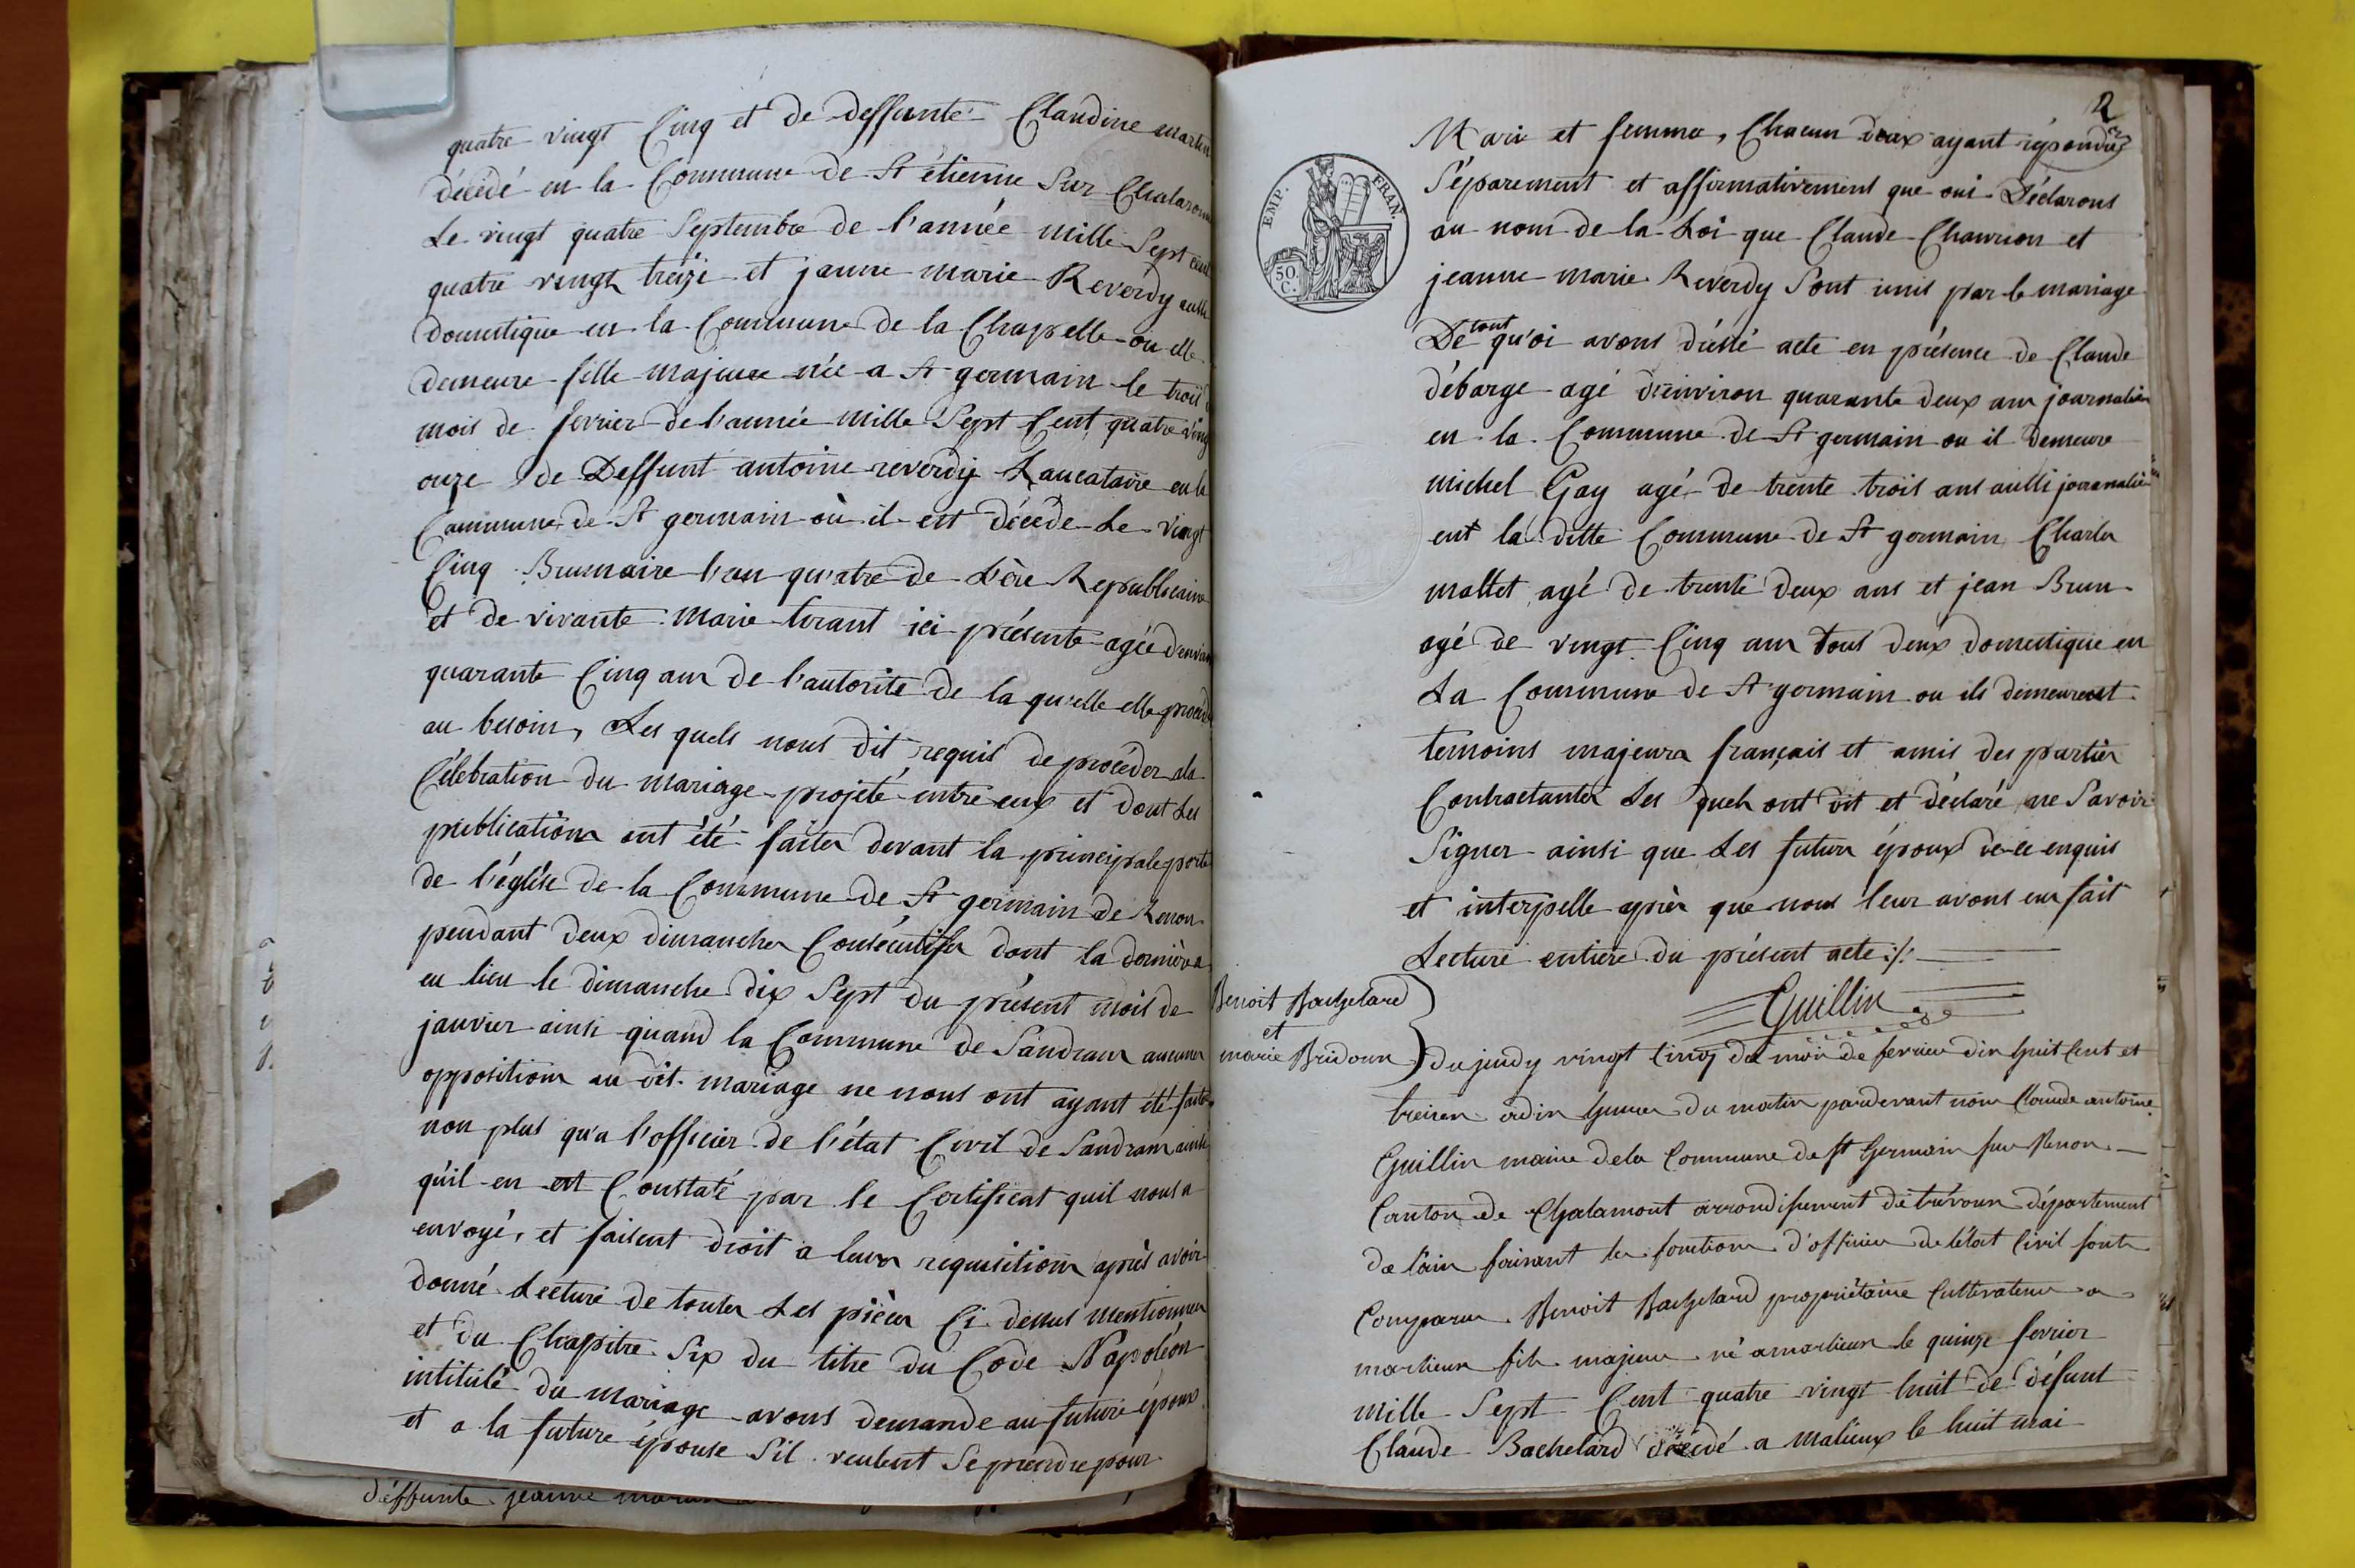 quatre vingt Cinq et de deffunte Claudine martin
décédé en la Commune de St étienne Sur Chalaronne
Le vingt quatre Septembre de l'année mille Sept cent
quatre vingt treize et jeanne marie Reverdy aussi
domestique en la Commune de la Chapelle ou elle
demeure fille majeure née a St germain le trois
mois de fevrier de l'année mille Sept Cent quatre vingt
onze de Deffunt antoine reverdy Laucataire en la
Commune de St germain où il est décédé Le vingt
Cinq Brumaire l'an quatre de L'ère Republicaine
et de vivante marie tirant ici présente agée d'environ
quarante Cinq ans de l'autorité de la qu'elle elle procède
au besoin, Les quels nous dit requis de procéder ala
Célébration du mariage projeté entre eux et dont Les
publications ont été faites devant la principale porte
de l'église de la Commune de St germain de Renon
pendant deux dimanches Consécutifs dont la dernière a
eu lieu le dimanche dix Sept du présent mois de
janvier ainsi quand la Commune de Sandrans aucunes
oppositions au dit mariage ne nous ont ayant été faite
non plus qu'a l'officier de l'état Civil de Sandrans ainsi
qu'il en est Constaté par le Certificat quil nous a
envoyé, et faisent droit a leurs requisitions après avoir
donné Lecture de toutes Les pièces Ci dessus mentionnées
et du Chapitre Six du titre du Code Napoléon
intitulé du mariage avons demande au future époux
et a la future épouse S'il veulent Se prendre pour
deffunte jeanne
2
Mari et femme, Chacun deux ayant répondu
Séparement et affirmativement que oui Déclarons
au nom de la Loi que Claude Chawion et
jeanne marie Reverdy Sont unis par le mariage
De tout qu'oi avons dréssé acte en présence de Claude
débarge agé d'environ quarante deux ans journalier
en la Commune de St germain ou il demeure
michel Gay agé de trente trois ans aussi journalier
ent la ditte Commune de St germain Charles
mallet agé de trente deux ans et jean Brun
agé de vingt Cinq ans tous deux domestique en
La Commune de St germain ou ils demeurent
temoins majeurs français et amis des parties
Contractantes Les quels ont dit et déclaré ne Savoir
Signer ainsi que Les futurs époux de ce enquis
et interpelle après que nous leur avons eu fait
Lecture entière du présent acte ./.
Guillin
EMP. FRAN.
50 C.
Benoit Bachelard
et
marie Bridoun
du jeudy vingt Cinq du mois de fevrier dix huit Cent et
treize a dix heures du matin pardevant nous Claude antoine
Guillin maire de la Commune de St Germain sur Renon
Canton de Chalamont arrondissement de trévoux département
de l'ain faisant les fonctions d'officier de l'état Civil sont
Comparus Benoit Bachelard propriétaire Cultivateur a
marlieux fils majeur né a marlieux le quinze fevrier
mille Sept Cent quatre vingt huit de défunt
Claude Bachelard décédé a malieux le huit mai